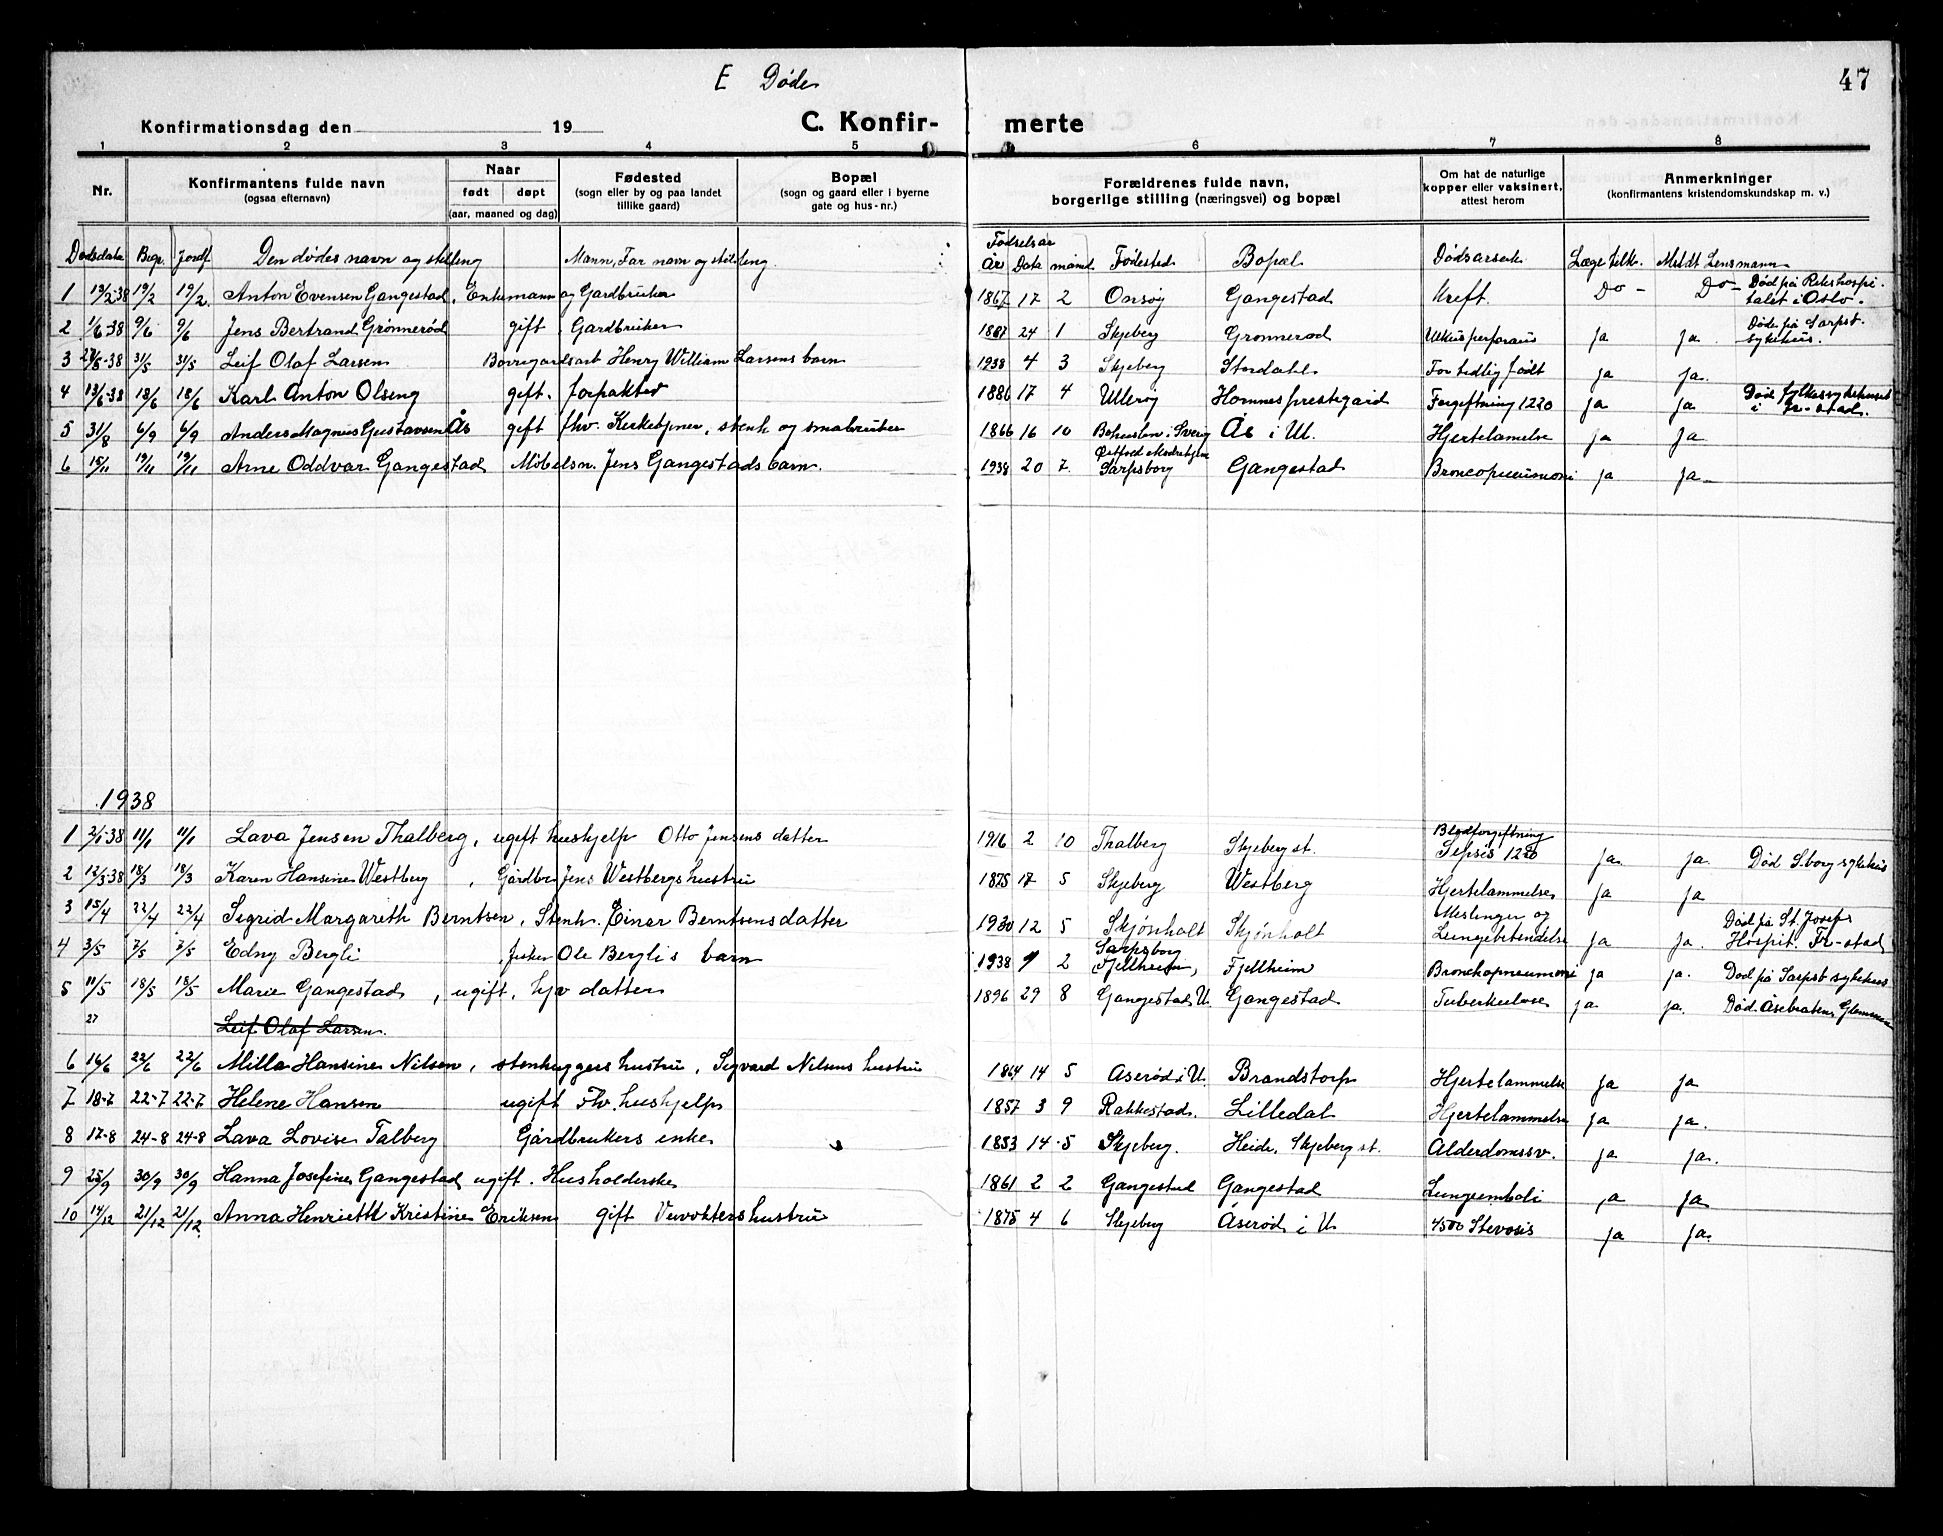 E Døde
47
Konfirmationsdag den 19
C. Konfir- merte
1 2 3 4 5 6 7 8
Nr. Konfirmantens fulde navn (ogsaa efternavn) Naar født døpt (aar, maaned og dag) Fødested (sogn eller by og paa landet tillike gaard) Bopæl (sogn og gaard eller i byerne gate og hus-nr.) Forældrenes fulde navn, borgerlige stilling (næringsvei) og bopæl Om hat de naturlige kopper eller vaksinert, attest herom Anmerkninger (konfirmantens kristendomskundskap m. v.)
Dødsdata Begr. Jordf. Den dødes navn og stilling Mann, Far navn og stilling. Fødselsår År Data måned Fødested Bopæl Dødsårsak Læge tilk. Meldt Lensmann
1 13/2-38 19/2 19/2 Anton Evensen Gangestad, Enkemann og Gardbruker 1867 17 2 Onsøy Gangestad Kreft. Do - Do - Død på Rikshospitalet i Oslo.
2 1/6-38 9/6 9/6 Jens Bertrand Grønnerød gift Gardbruker 1887 24 1 Skjeberg Grønnerød Ulkusperforans ja ja Døde på Sarpsb. sykehus.
3 27/5-38 31/5 31/5 Leif Olaf Larsen Borregardsarb Henry William Larsens barn 1938 4 3 Skjeberg Stordahl For tidlig født ja ja.
4 13/6-38 18/6 18/6 Karl Anton Olseng gift. forpakter 1886 17 4 Ullerøy Hornnes prestegård Forgiftning 1220 ja ja Død fylkessykehuset i Fr-stad.
5 31/8 6/9 6/9 Anders Magnus Gustavsen Ås gift fhv. Kirketjner, stenh og småbruker 1866 16 10 Bohuslen i Sverig Ås i Ul. Hjertelamelse ja ja
6 15/11 19/11 19/11 Arne Oddvar Gangestad Møbelsn. Jens Gangestads barn. 1938 20 7. Østfold Mødrehjem Sarpsborg Gangestad Broncopneumoni ja ja
1938
1 2/1-38 11/1 11/1 Lava Jensen Thalberg, ugift hushjelp Otto Jensens datter 1916 2 10 Thalberg Skjeberg st. Blodforgiftning Sepsis 1220 ja. ja. Død S.borg sykehus
2 12/3-38 18/3 18/3 Karen Hansine Westberg, Gårdbr Jens Westbergs hustru 1875 17 5 Skjeberg Westberg Hjertelammelse ja ja
3 15/4 22/4 22/4 Sigrid Margareth Berntsen, Stenh. Einar Berntsens datter 1930 12 5 Skjønholt Skjønholt Meslinger og Lungebetendelse ja ja. Død på St. Josefs Hospit. Fr-stad
4 3/5 7/5 7/5 Edny Bergli fisker Ole Berglis barn 1938 9 2 Sarpsborg Fjellheim, Fjellheim Bronchopneumoni ja ja. Død på Sarpsb sykehus
5 11/5 18/5 18/5 Marie Gangestad, ugift, hjv datter 1896 29 8 Gangestad U. Gangestad Tuberkulose ja ja. Død Åsebråten Glemmen
27 Leif Olaf Larsen.
6 16/6 22/6 22/6 Milla Hansine Nilsen, stenhuggers hustru, Sigvard Nilsens hustru 1864 14 5 Åserød i U. Brandstorp Hjertelammelse ja ja
7 18-7 22-7 22-7 Helene Hansen ugift Fhv. hushjelp 1857 3 9 Rakkestad. Lilledal Hjertelammelse ja ja.
8 17-8 24-8 24-8 Lava Lovise Talberg Gårdbrukers enke 1853 14-5 Skjeberg. Heide, Skjeberg st. Alderdomssv. ja ja.
9 25/9 30/9 30/9 Hanna Josefine Gangestad ugift. Husholderske 1861 2 2 Gangestad Gangestad Lungeemboli ja ja
10 14/12 21/12 21/12 Anna Henriette Kristine Eriksen gift Vevokters hustru 1875 4 6 Skjeberg Åserød i U 4500 Stevosis ja ja.